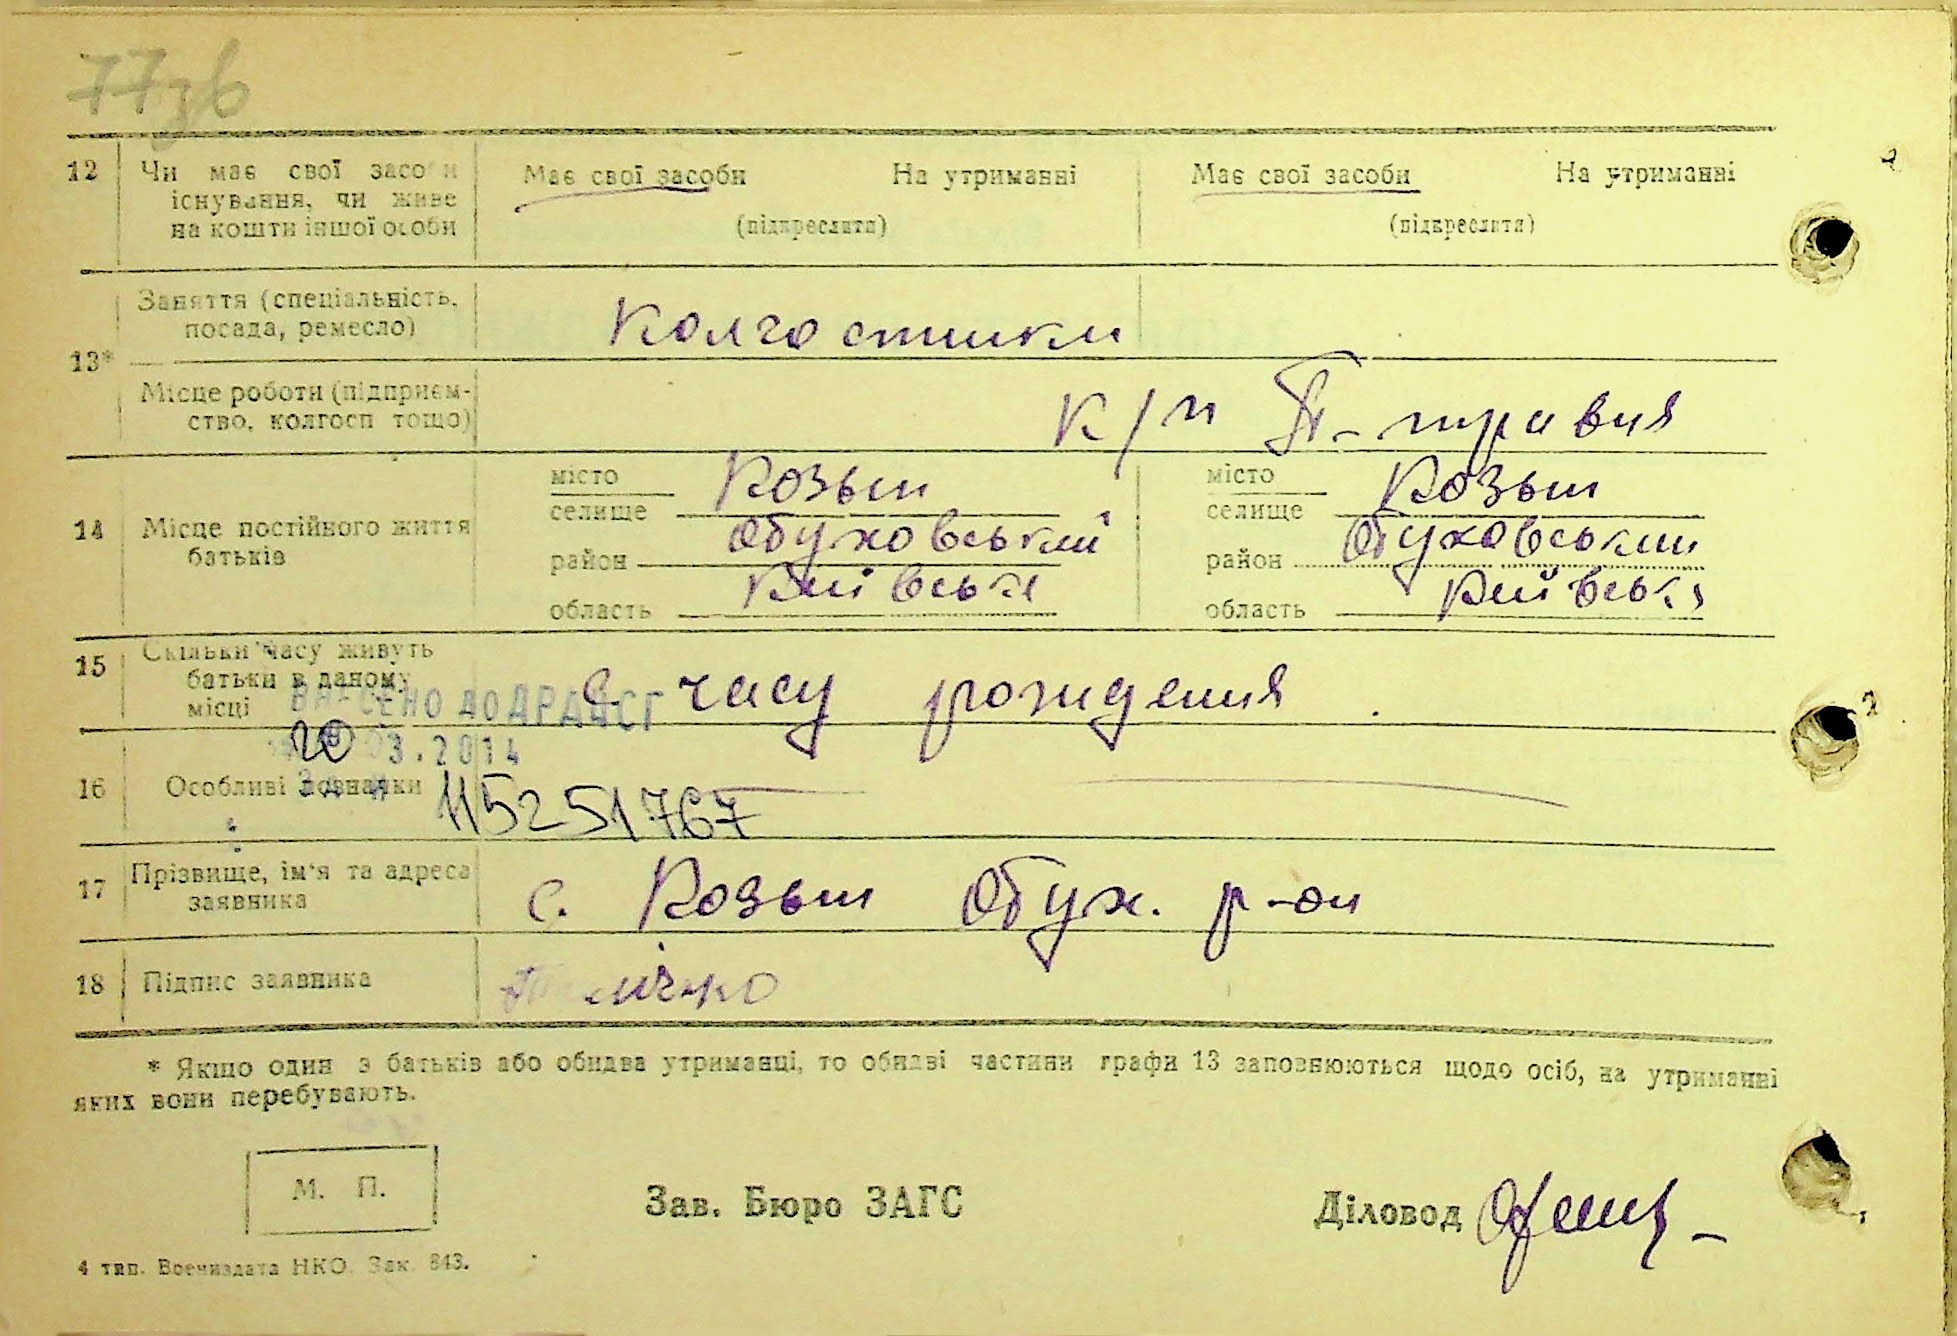 77зв
12 Чи має свої засоби Має свої засоби На утриманні Має свої засоби На утриманні
існування, чи живе
на кошти іншої особи (підкреслити) (підкреслити)
Заняття (спеціальність,
посада, ремесло) Колгоспники
13*
Місце роботи (підприєм-
ство, колгосп тощо) к/г травня
місто Козын місто Козын
селище селище
14 Місце постійного життя Обуховський Обуховський
батьків район район
Київська Київська
область область
15 Скільки часу живуть
батьки в даному С часу рождения
місці
ВНЕСЕНО до ДРАЦСГ
20 03.2014
16 Особливі познаки
115251767
17 Прізвище, ім'я та адреса
заявника с. Козын Обух. р-он
18 Підпис заявника
* Якщо один з батьків або обидва утриманці, то обидві частини графи 13 заповнюються щодо осіб, на утриманні
яких вони перебувають.
М. П.
Зав. Бюро ЗАГС Діловод
4 тип. Воениздата НКО. Зак. 843.